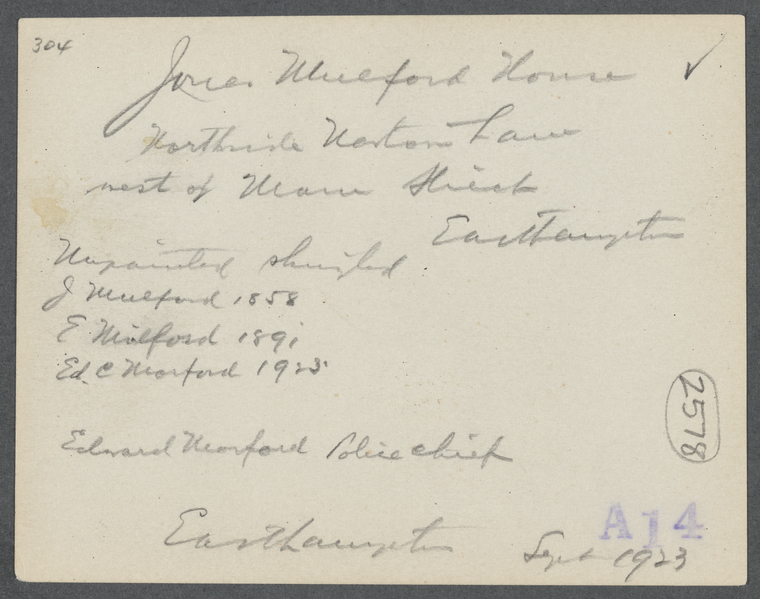 304
Jonas Mulford House ✓
Northside Lane
west of Main Street
Easthampton
Unpainted shingled
J Mulford 1858
E Mulford 1891
Ed. C Morford 1923
2578
Edward Morford Police chief
A14
Easthampton Sept 1923